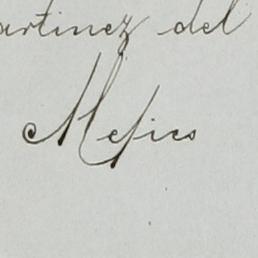 artinez del
Mejico